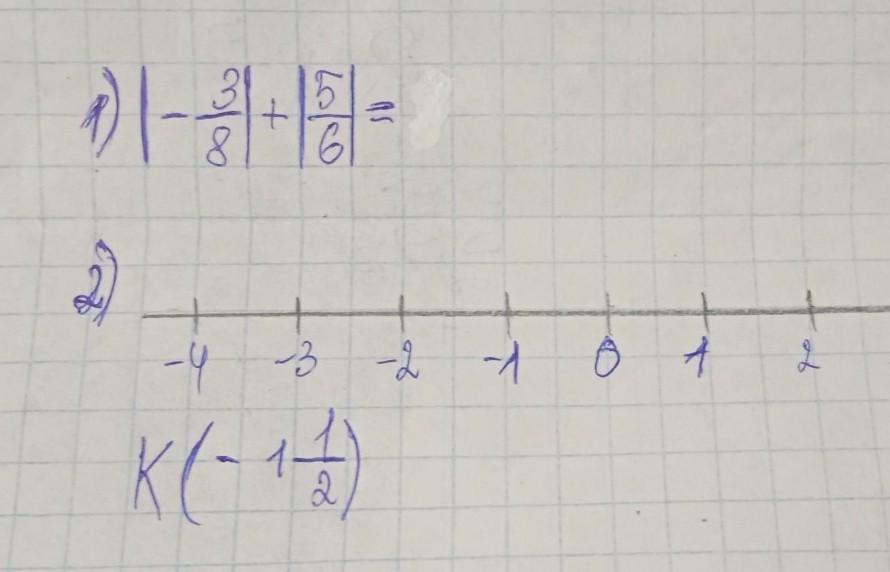 1) |-3/8| + |5/6| =
2)
-4 -3 -2 -1 0 1 2
K(-1 1/2)